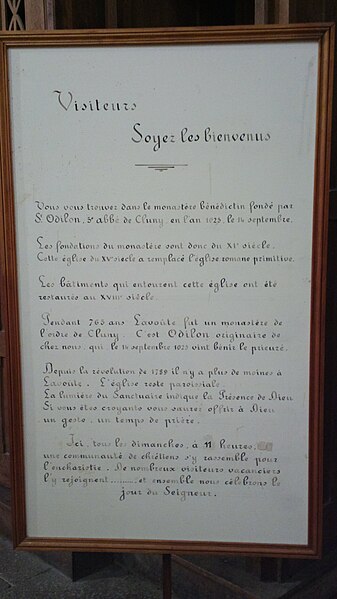 Visiteurs
Soyez les bienvenus
Vous vous trouvez dans le monastère bénédictin fondé par
St Odilon, 5e abbé de Cluny, en l'an 1025, le 14 septembre.
Les fondations du monastère sont donc du XIe siècle.
Cette église du XVe siècle a remplacé l'église romane primitive.
Les bâtiments qui entourent cette église ont été
restaurés au XVIIIe siècle.
Pendant 765 ans Lavoûte fut un monastère de
l'ordre de Cluny. C'est Odilon originaire de
chez nous, qui le 14 septembre 1025 vint bénir le prieuré.
Depuis la révolution de 1789 il n'y a plus de moines à
Lavoûte. L'église reste paroissiale.
La lumière du Sanctuaire indique la Présence de Dieu
Si vous êtes croyants vous saurez offrir à Dieu
un geste, un temps de prière.
Ici, tous les dimanches, à 11 heures,
une communauté de chrétiens s'y rassemble pour
l'eucharistie. De nombreux visiteurs vacanciers
l'y rejoignent.........et ensemble nous célébrons le
jour du Seigneur.